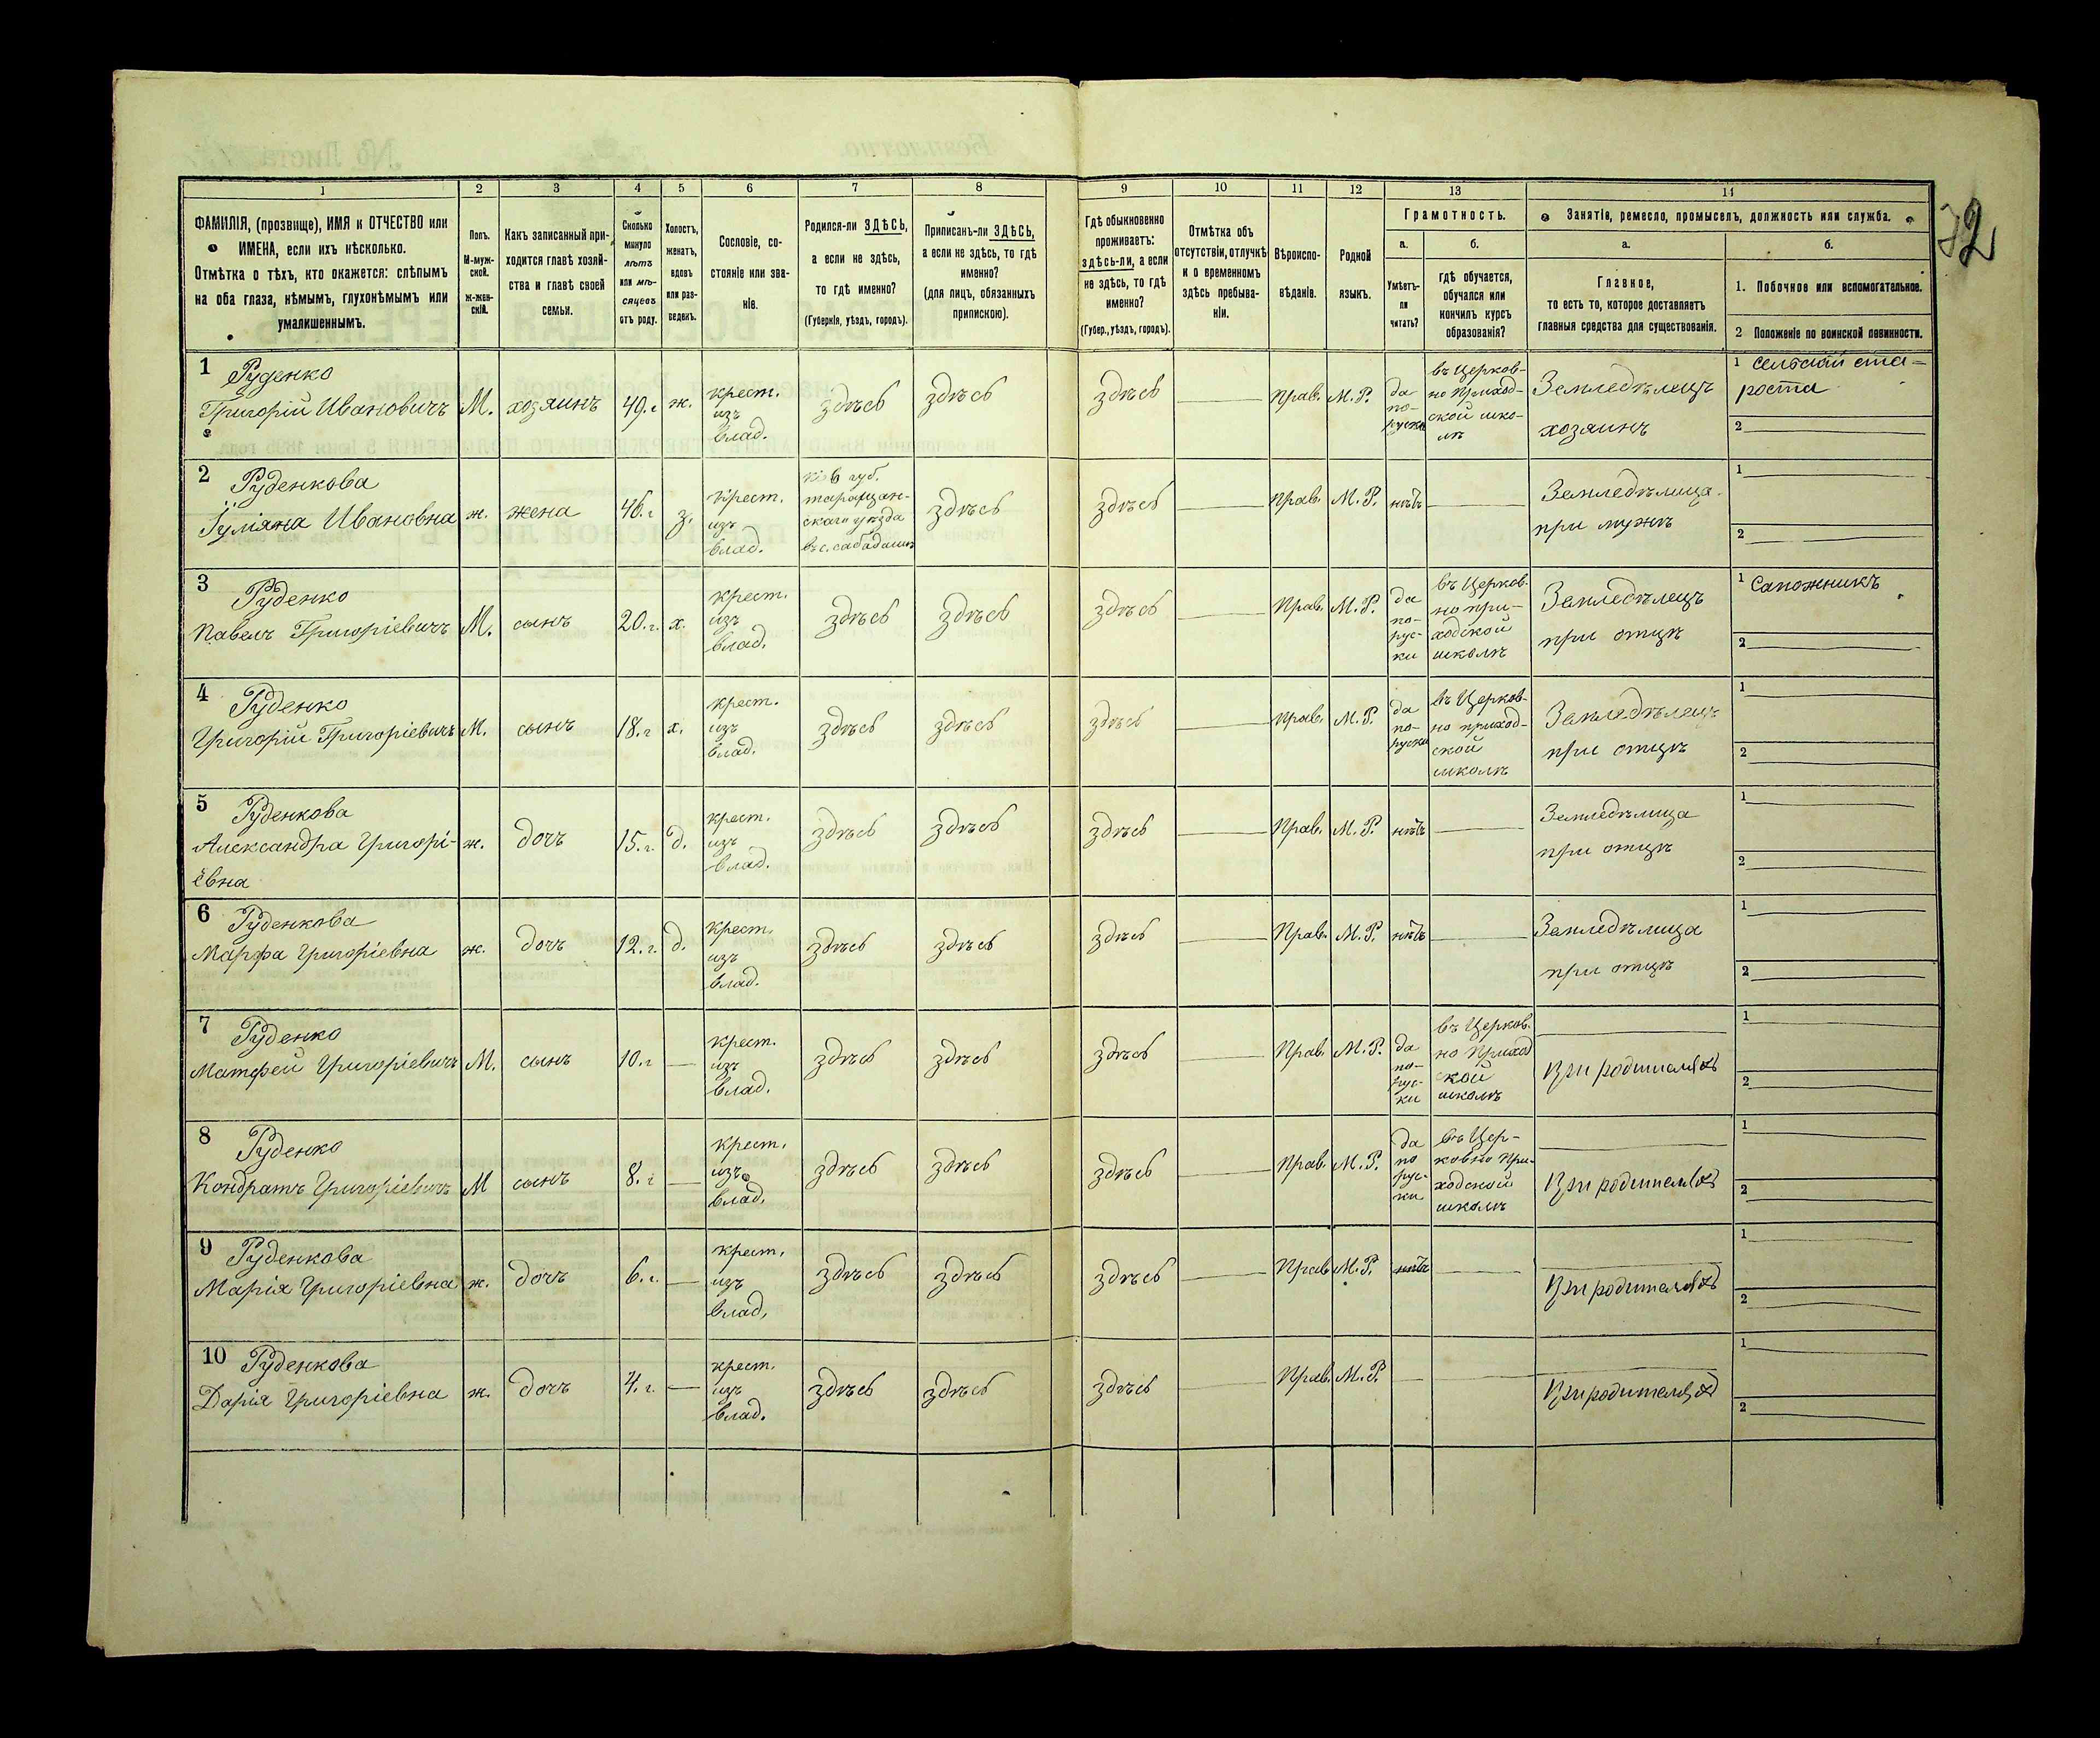 32
1 2 3 4 5 6 7 8 9 10 11 12 13 14
ФАМИЛІЯ, (прозвище), ИМЯ и ОТЧЕСТВО или
ИМЕНА, если ихъ нѣсколько.
Отмѣтка о тѣхъ, кто окажется: слѣпымъ
на оба глаза, нѣмымъ, глухонѣмымъ или
умалишеннымъ.
Полъ.
М-муж-
ской.
Ж-жен-
скій.
Какъ записанный при-
ходится главѣ хозяй-
ства и главѣ своей
семьи.
Сколько
минуло
лѣтъ
или мѣ-
сяцевъ
отъ роду.
Холостъ,
женатъ,
вдовъ
или раз-
веденъ.
Сословіе, со-
стояніе или зва-
ніе.
Родился-ли ЗДѢСЬ,
а если не здѣсь,
то гдѣ именно?
(Губернія, уѣздъ, городъ).
Приписанъ-ли ЗДѢСЬ,
а если не здѣсь, то гдѣ
именно?
(для лицъ, обязанныхъ
припискою).
Гдѣ обыкновенно
проживаетъ:
здѣсь-ли, а если
не здѣсь, то гдѣ
именно?
(Губер., уѣздъ, городъ).
Отмѣтка объ
отсутствіи, отлучкѣ
и о временномъ
здѣсь пребыва-
ніи.
Вѣроиспо-
вѣданіе.
Родной
языкъ.
Грамотность.
а.
Умѣетъ-
ли
читать?
б.
гдѣ обучается,
обучался или
кончилъ курсъ
образованія?
Занятіе, ремесло, промыселъ, должность или служба.
а.
Главное,
то есть то, которое доставляетъ
главныя средства для существованія.
б.
1. Побочное или вспомогательное.
2 Положеніе по воинской повинности.
1 Руденко
Григорій Ивановичъ
М.
хозяинъ
49.г
ж.
крест.
изъ
влад.
здѣсь
здѣсь
здѣсь
Прав.
М.Р.
да
по-
русски
въ Церков-
но Приход-
ской шко-
лѣ
Земледѣлецъ
хозяинъ
1 Сельскій ста-
роста
2
2 Руденкова
Іуліяна Ивановна
ж.
жена
46.г
з.
крест.
изъ
влад.
губ.
таращан-
скаго уѣзда
здѣсь
здѣсь
Прав.
М.Р.
нѣтъ
Земледѣлица
при мужѣ
1
2
3 Руденко
Павелъ Григоріевичъ
М.
сынъ
20.г.
х.
крест.
изъ
влад.
здѣсь
здѣсь
здѣсь
Прав.
М.Р.
да
по-
рус-
ки
въ Церков-
но при-
ходской
школѣ
Земледѣлецъ
при отцѣ
1 Сапожникъ
2
4 Руденко
Григорій Григоріевичъ
М.
сынъ
18.г
х.
крест.
изъ
влад.
здѣсь
здѣсь
здѣсь
Прав.
М.Р.
да
по-
русски
въ Церков-
но приход-
ской
школѣ
Земледѣлецъ
при отцѣ
1
2
5 Руденкова
Александра Григорі-
евна
ж.
дочъ
15.г.
д.
крест.
изъ
влад.
здѣсь
здѣсь
здѣсь
Прав.
М.Р.
нѣтъ
Земледѣлица
при отцѣ
1
2
6 Руденкова
Марфа Григоріевна
ж.
дочъ
12.г.
д.
крест.
изъ
влад.
здѣсь
здѣсь
здѣсь
Прав.
М.Р.
нѣтъ
Земледѣлица
при отцѣ
1
2
7 Руденко
Матфей Григоріевичъ
М.
сынъ
10.г
крест.
изъ
влад.
здѣсь
здѣсь
здѣсь
Прав.
М.Р.
да
по-
рус-
ки
въ Церков-
но Приход
ской
школѣ
При родителяхъ
1
2
8 Руденко
Кондратъ Григоріевичъ
М
сынъ
8.г
крест.
изъ
влад.
здѣсь
здѣсь
здѣсь
Прав.
М.Р.
да
по
рус-
ки
въ Цер-
ковно При-
ходской
школѣ
При родителяхъ
1
2
9 Руденкова
Марія Григоріевна
ж.
дочъ
6.г.
крест.
изъ
влад.
здѣсь
здѣсь
здѣсь
Прав.
М.Р.
нѣтъ
При родителяхъ
1
2
10 Руденкова
Дарія Григоріевна
ж.
дочъ
4.г.
крест.
изъ
влад.
здѣсь
здѣсь
здѣсь
Прав.
М.Р.
При родителяхъ
1
2